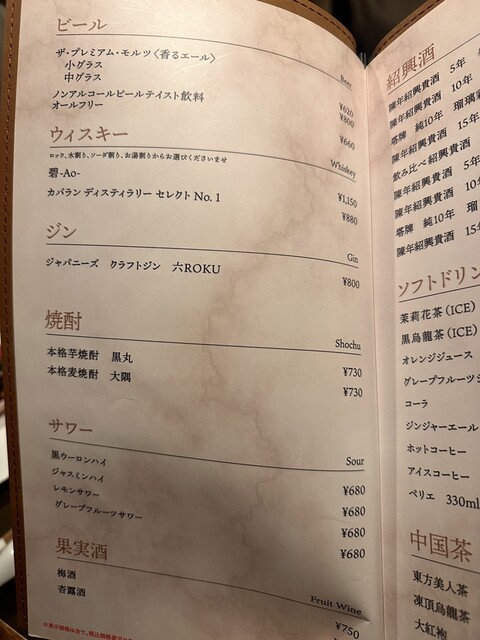 ビール
Beer
ザ・プレミアム・モルツ〈香るエール〉
小グラス ¥620
中グラス ¥800
ノンアルコールビールテイスト飲料
オールフリー ¥660
ウィスキー
Whiskey
ロック、水割り、ソーダ割り、お湯割りからお選びくださいませ
碧-Ao- ¥1,150
カバラン ディスティラリー セレクト No. 1 ¥880
ジン
Gin
ジャパニーズ クラフトジン 六ROKU ¥800
焼酎
Shochu
本格芋焼酎 黒丸 ¥730
本格麦焼酎 大隅 ¥730
サワー
Sour
黒ウーロンハイ ¥680
ジャスミンハイ ¥680
レモンサワー ¥680
グレープフルーツサワー ¥680
果実酒
Fruit Wine
梅酒 ¥750
杏露酒
紹興酒
陳年紹興貴酒 5年
陳年紹興貴酒 10年
塔牌 純10年 瑠璃
陳年紹興貴酒 15年
飲み比べ紹興貴酒
陳年紹興貴酒 5年
陳年紹興貴酒 10年
塔牌 純10年 瑠
陳年紹興貴酒 15年
ソフトドリン
茉莉花茶 (ICE)
黒烏龍茶 (ICE)
オレンジジュース
グレープフルーツ
コーラ
ジンジャーエール
ホットコーヒー
アイスコーヒー
ペリエ 330ml
中国茶
東方美人茶
凍頂烏龍茶
大紅袍